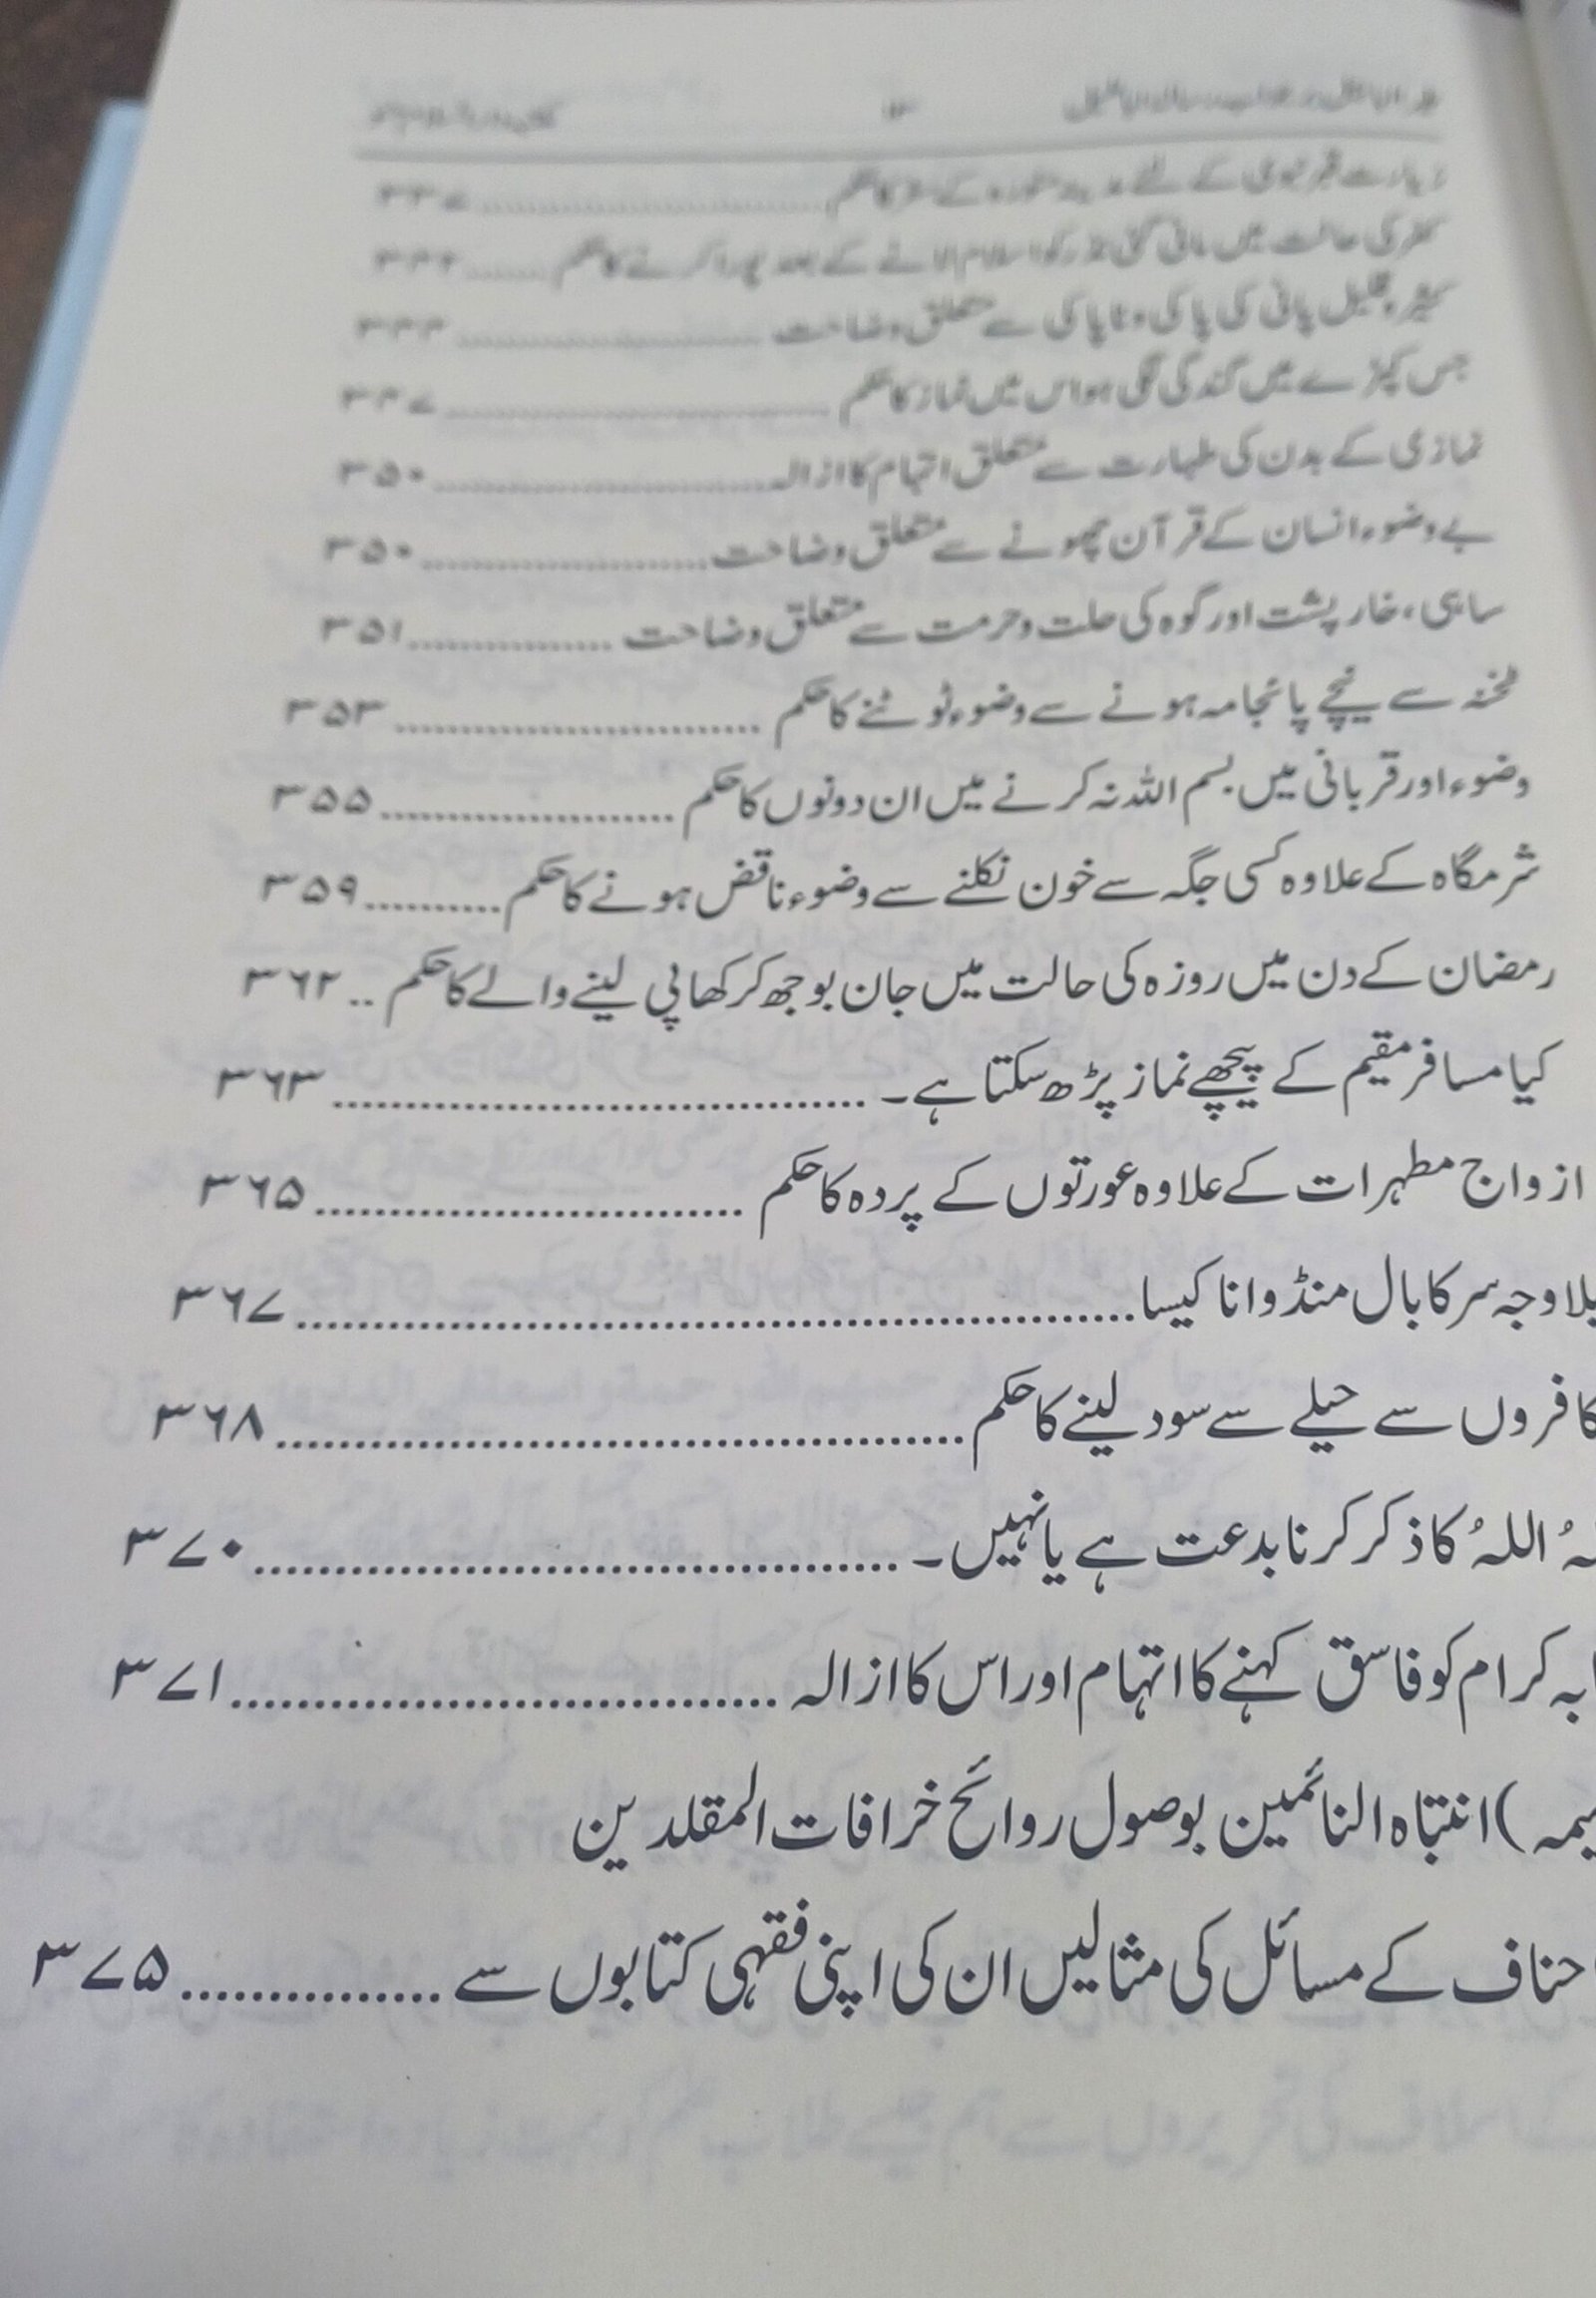 زیارت قبر نبوی کے لئے مدینہ منورہ کے سفر کا حکم
کفر کی حالت میں مانی گئی نذر کو اسلام لانے کے بعد پورا کرنے کا حکم
کثیر و قلیل پانی کی پاکی و ناپاکی سے متعلق وضاحت
جس کپڑے میں گندگی لگی ہو اس میں نماز کا حکم ۳۴۷
نمازی کے بدن کی طہارت سے متعلق اتہام کا ازالہ ۳۵۰
بے وضوء انسان کے قرآن چھونے سے متعلق وضاحت ۳۵۰
ساہی، خار پشت اور گوہ کی حلت و حرمت سے متعلق وضاحت ۳۵۱
ٹخنہ سے نیچے پائجامہ ہونے سے وضوء ٹوٹنے کا حکم ۳۵۳
وضوء اور قربانی میں بسم اللہ نہ کرنے میں ان دونوں کا حکم ۳۵۵
شرمگاہ کے علاوہ کسی جگہ سے خون نکلنے سے وضوء ناقض ہونے کا حکم ۳۵۹
رمضان کے دن میں روزہ کی حالت میں جان بوجھ کر کھا پی لینے والے کا حکم .. ۳۶۲
کیا مسافر مقیم کے پیچھے نماز پڑھ سکتا ہے۔ ۳۶۳
ازواج مطہرات کے علاوہ عورتوں کے پردہ کا حکم ۳۶۵
بلاوجہ سر کا بال منڈوانا کیسا ۳۶۷
کافروں سے حیلے سے سود لینے کا حکم ۳۶۸
اللہُ کا ذکر کرنا بدعت ہے یا نہیں۔ ۳۷۰
کرام کو فاسق کہنے کا اتہام اور اس کا ازالہ ۳۷۱
) انتباہ النائمین بوصول روائح خرافات المقلدین
حناف کے مسائل کی مثالیں ان کی اپنی فقہی کتابوں سے ۳۷۵